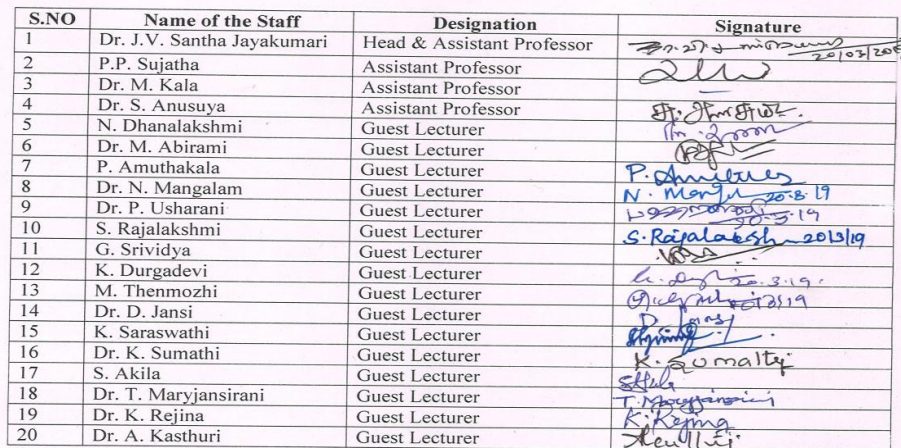 S.NO Name of the Staff Designation Signature
1 Dr. J.V. Santha Jayakumari Head & Assistant Professor 20/03/20
2 P.P. Sujatha Assistant Professor
3 Dr. M. Kala Assistant Professor
4 Dr. S. Anusuya Assistant Professor
5 N. Dhanalakshmi Guest Lecturer
6 Dr. M. Abirami Guest Lecturer
7 P. Amuthakala Guest Lecturer P.
8 Dr. N. Mangalam Guest Lecturer N. 20-3-19
9 Dr. P. Usharani Guest Lecturer 20-3-19
10 S. Rajalakshmi Guest Lecturer S. Rajalakshmi 20/3/19
11 G. Srividya Guest Lecturer
12 K. Durgadevi Guest Lecturer 20.3.19.
13 M. Thenmozhi Guest Lecturer 20/3/19
14 Dr. D. Jansi Guest Lecturer
15 K. Saraswathi Guest Lecturer
16 Dr. K. Sumathi Guest Lecturer K. Sumathy
17 S. Akila Guest Lecturer
18 Dr. T. Maryjansirani Guest Lecturer T. Maryjansirani
19 Dr. K. Rejina Guest Lecturer K. Rejina
20 Dr. A. Kasthuri Guest Lecturer